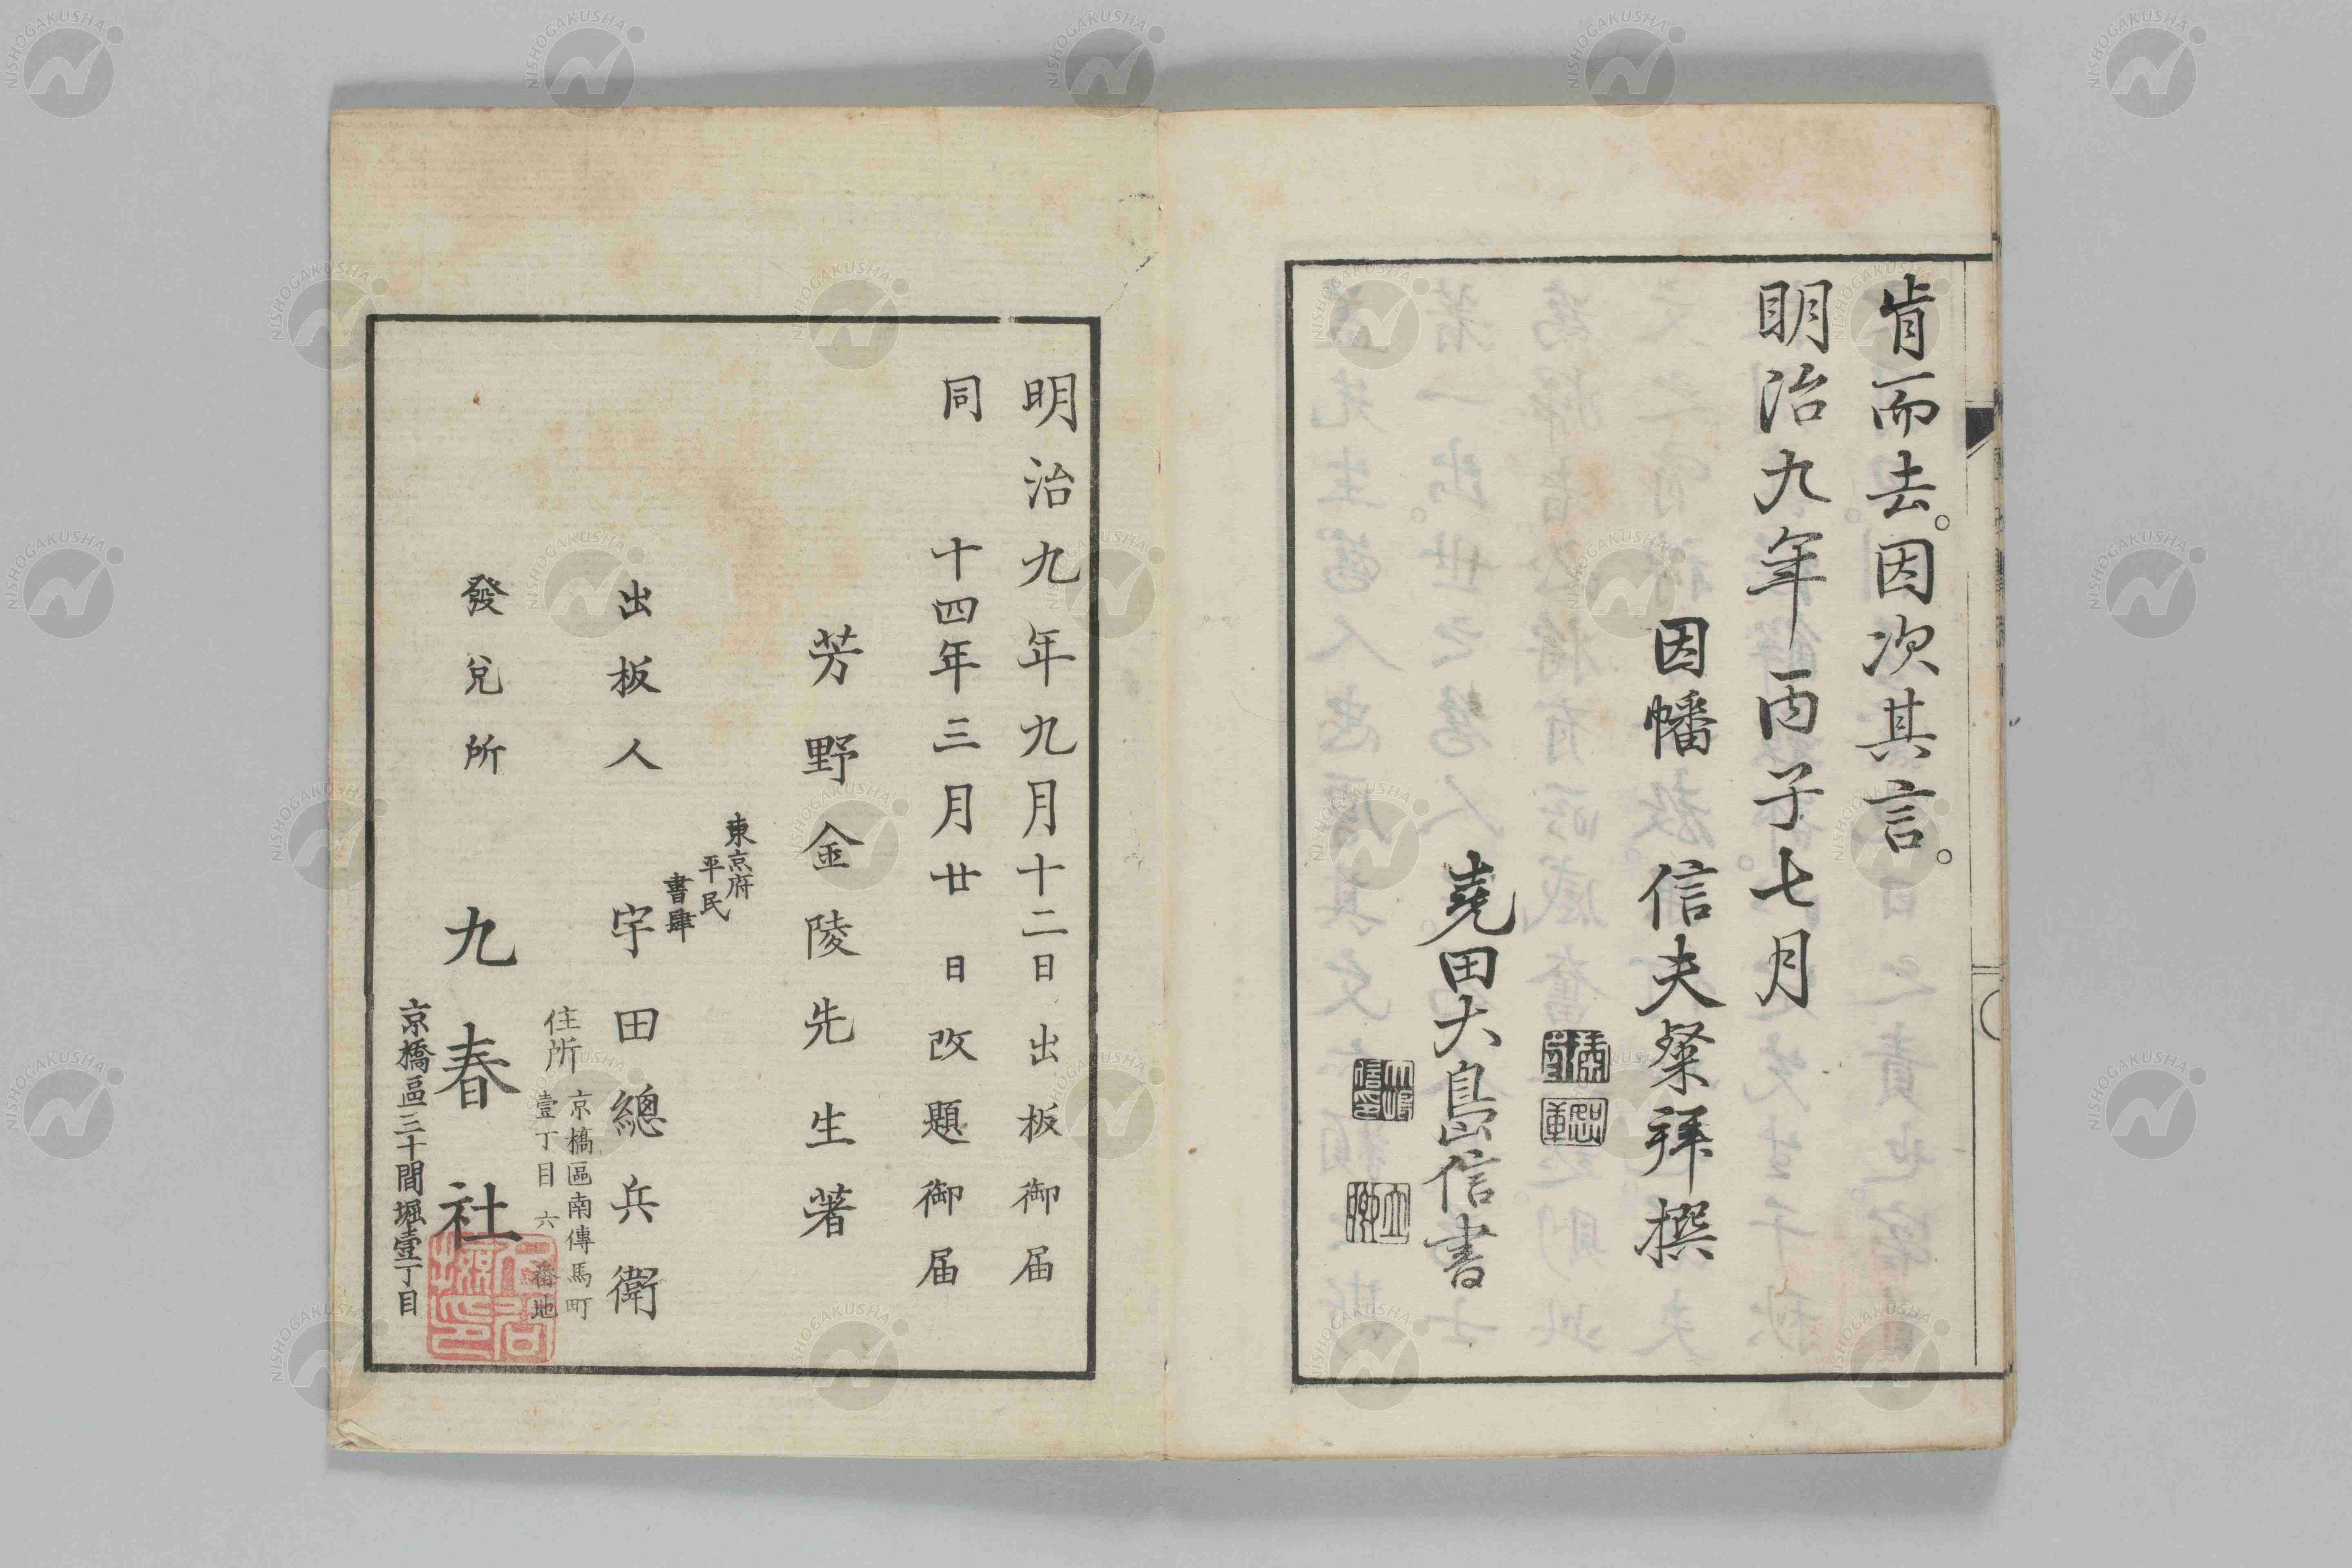 肯而去。因次其言。
明治九年丙子七月
因幡 信夫粲拜撰
堯田大島信書
明治九年九月十二日出板御届
同 十四年三月廿日改題御届
芳野金陵先生著
東京府
平民
書肆
出板人 宇田總兵衛
住所 京橋區南傳馬町
壹丁目六番地
發兌所 九春社
京橋區三十間堀壹丁目
NISHOGAKUSHA